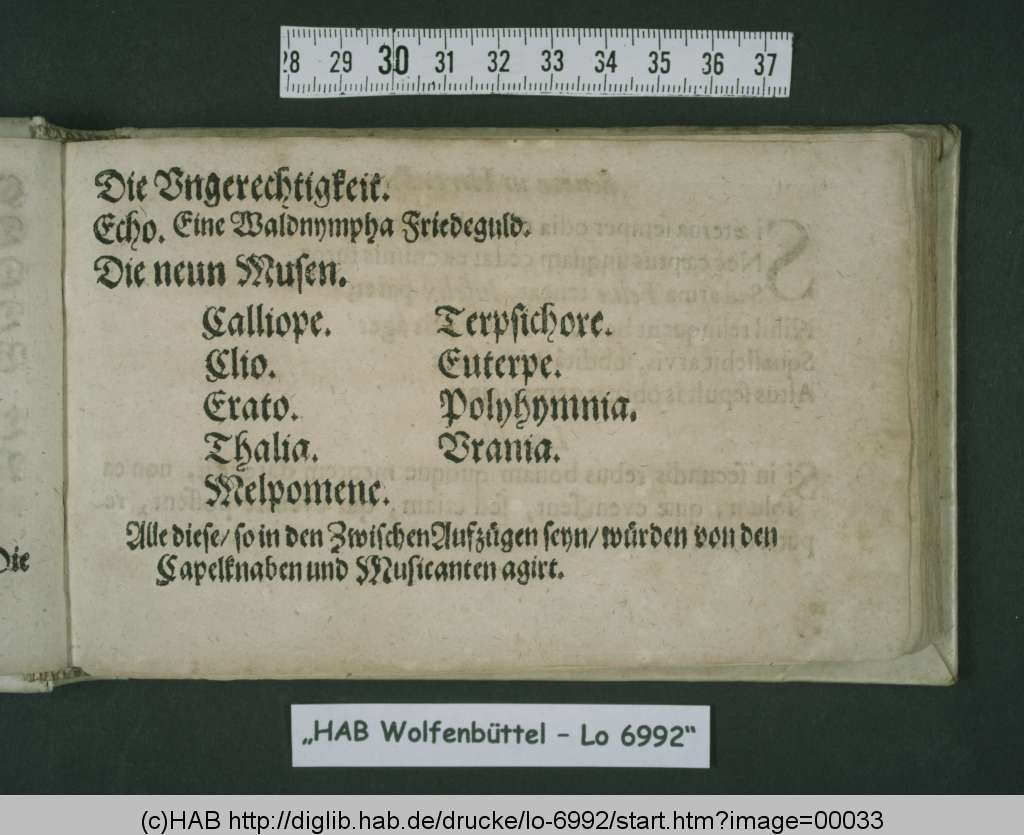 28 29 30 31 32 33 34 35 36 37
Die Vngerechtigkeit.
Echo. Eine Waldnympha Friedeguld.
Die neun Musen.
Calliope. Terpsichore.
Clio. Euterpe.
Erato. Polyhymnia.
Thalia. Vrania.
Melpomene.
Alle diese/ so in den ZwischenAufzügen seyn/ würden von den
Capelknaben und Musicanten agirt.
Die
„HAB Wolfenbüttel – Lo 6992“
(c)HAB http://diglib.hab.de/drucke/lo-6992/start.htm?image=00033